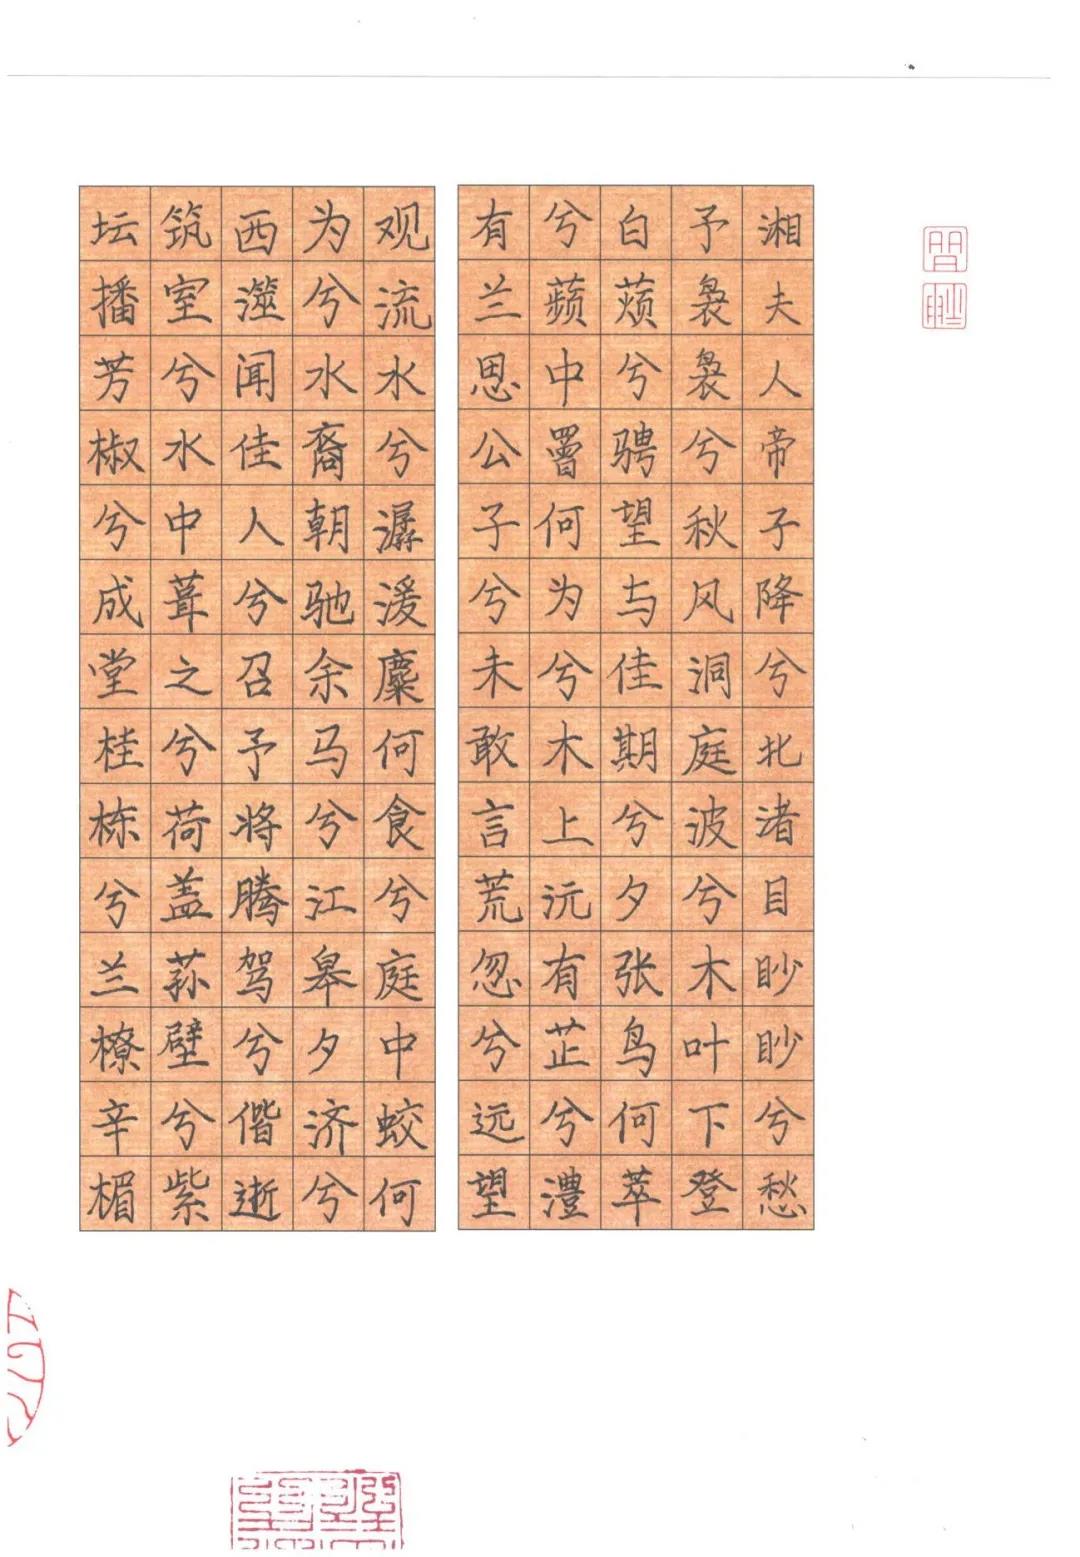 湘夫人帝子降兮北渚目眇眇兮愁
予袅袅兮秋风洞庭波兮木叶下登
白薠兮骋望与佳期兮夕张鸟何萃
兮蘋中罾何为兮木上沅有芷兮澧
有兰思公子兮未敢言荒忽兮远望
观流水兮潺湲麋何食兮庭中蛟何
为兮水裔朝驰余马兮江皋夕济兮
西澨闻佳人兮召予将腾驾兮偕逝
筑室兮水中葺之兮荷盖荪壁兮紫
坛播芳椒兮成堂桂栋兮兰橑辛楣